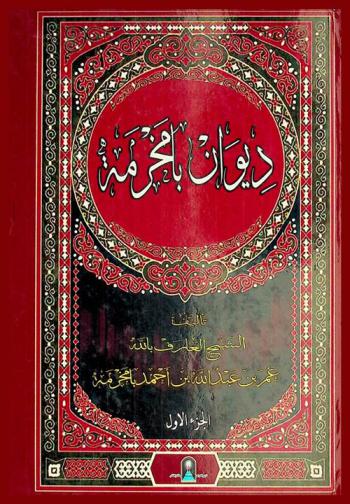 ديوان بامخرمة
تأليف
الشيخ العارف بالله
عمر بن عبد الله بن أحمد بامخرمة
الجزء الأول